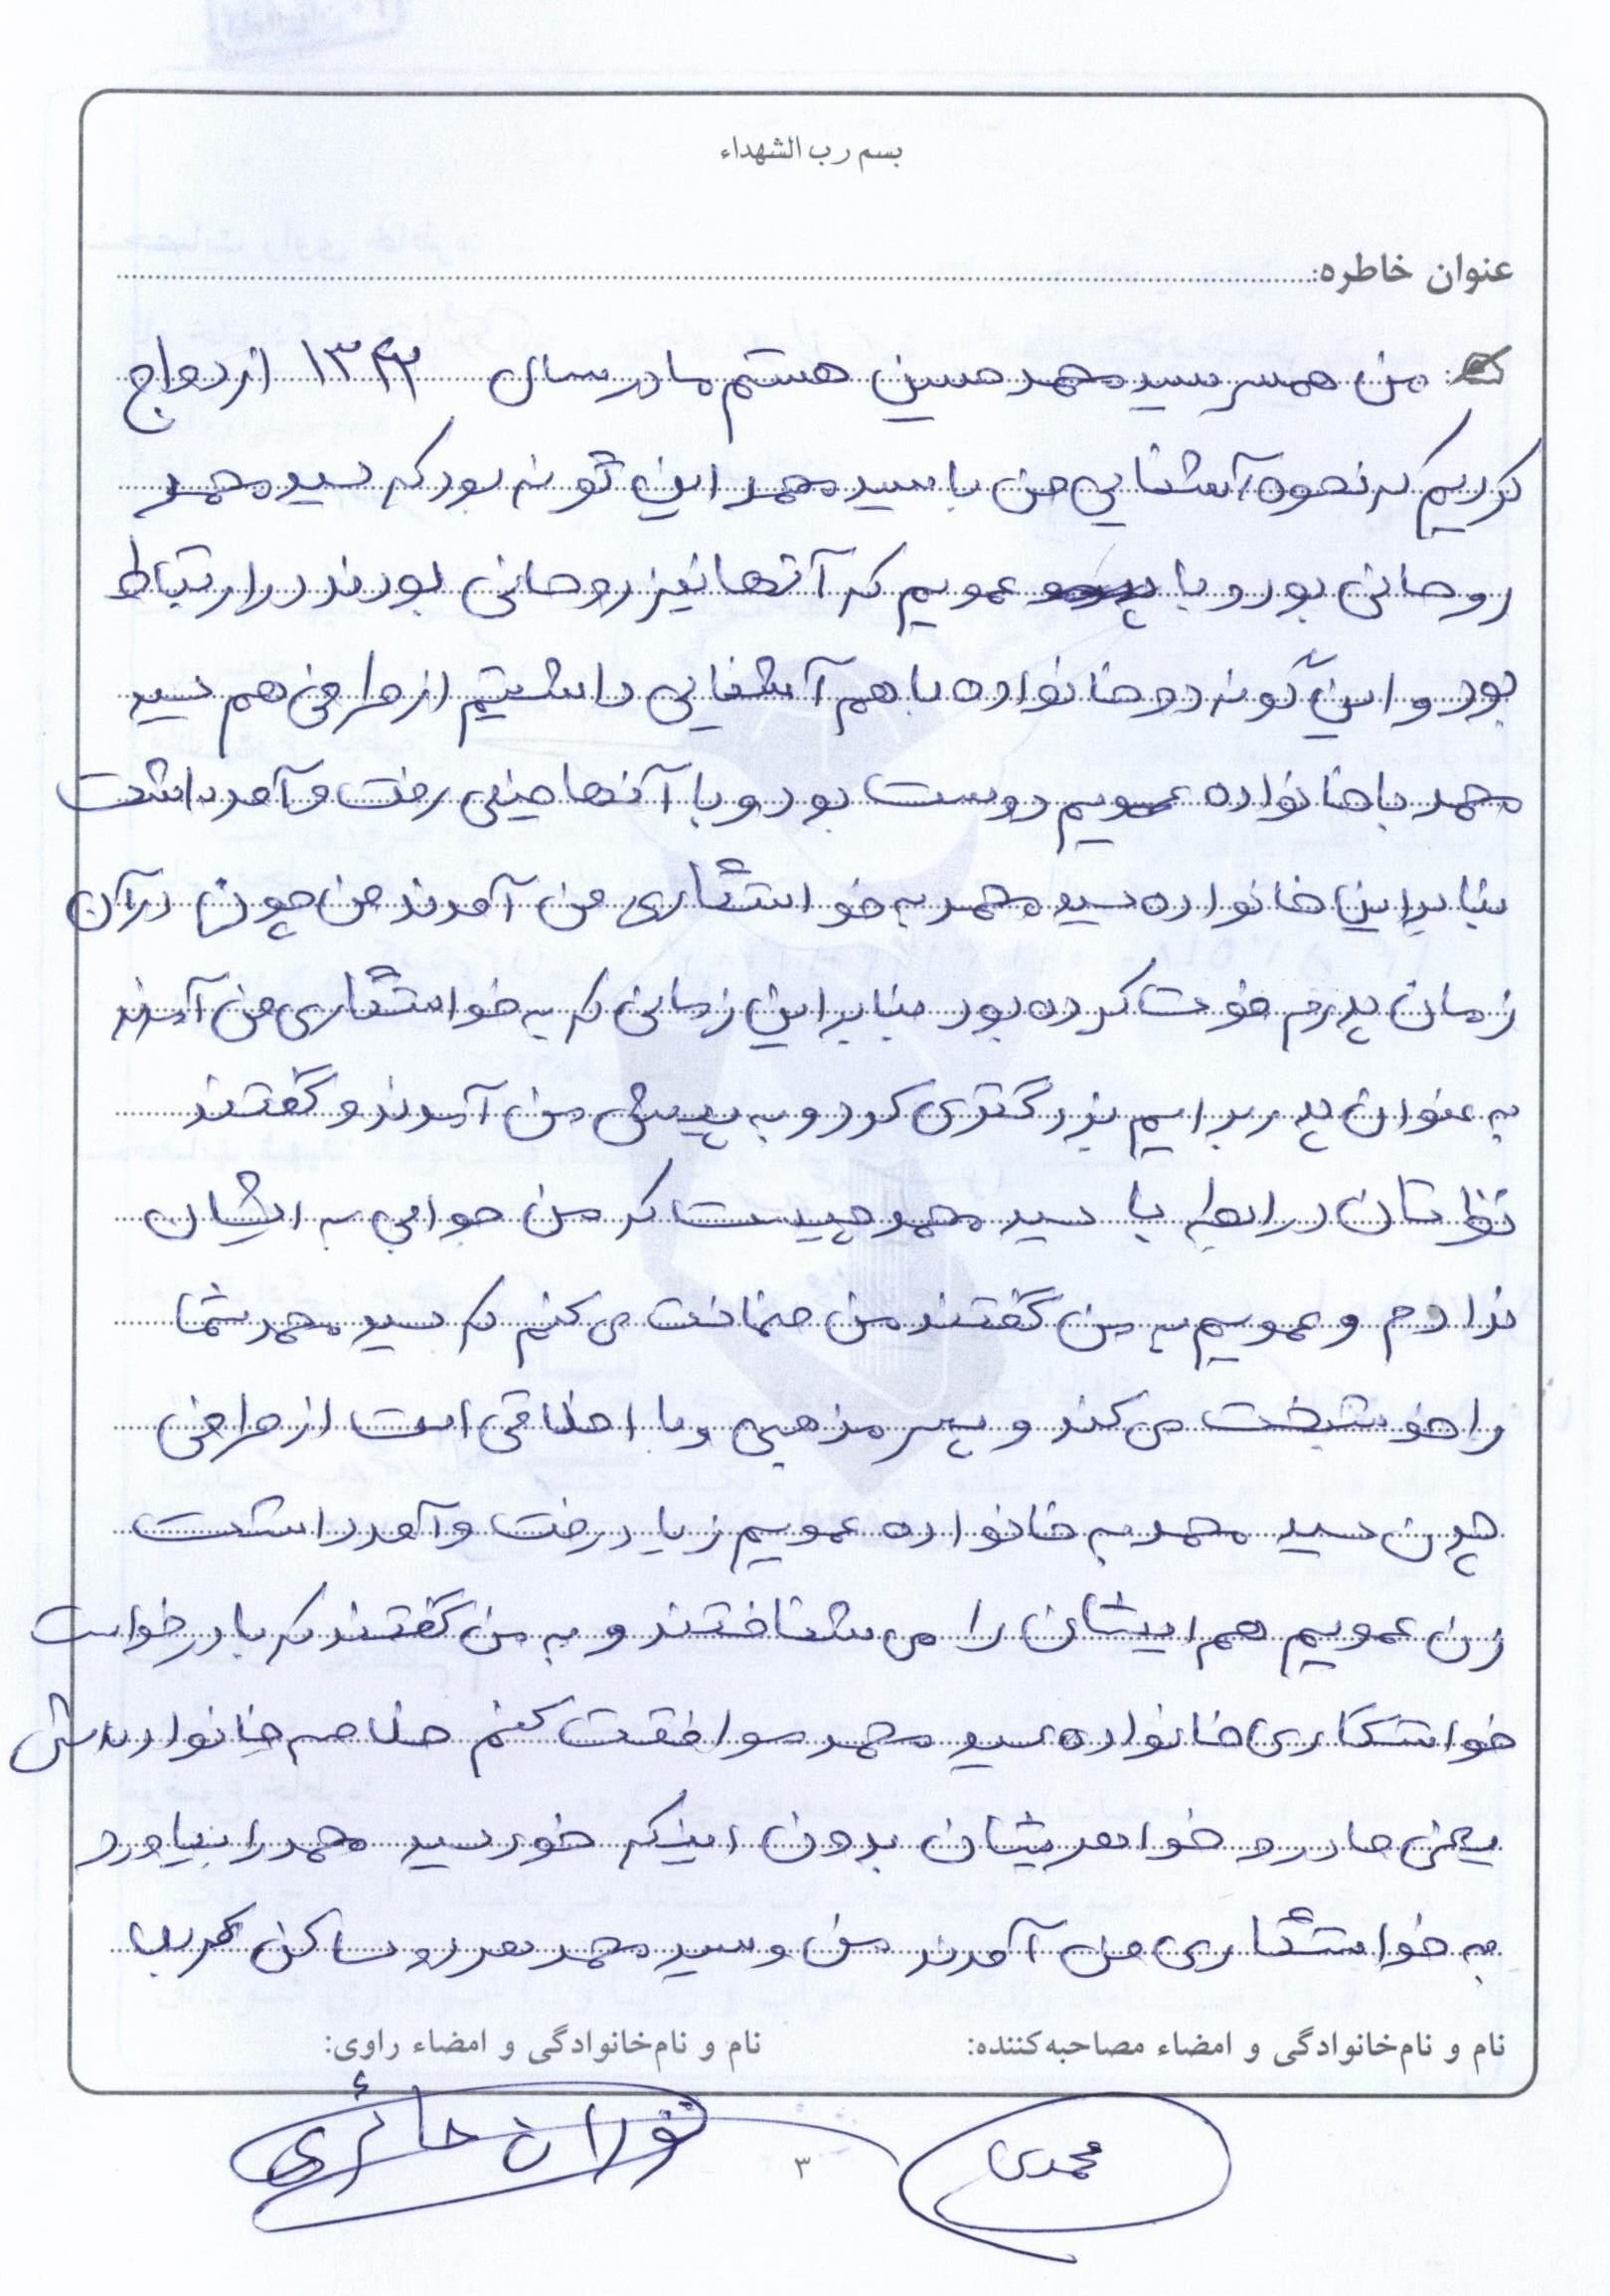 بسم رب الشهداء
عنوان خاطره:
من همسر سید محمد حسین هستم ما در سال ۱۳۴۳ ازدواج
کردیم که نحوه آشنایی من با سید محمد این گونه بود که سید محمد
روحانی بود و با عمویم که آنها نیز روحانی بودند در ارتباط
بود و این گونه دو خانواده با هم آشنایی داشتیم از طرفی هم سید
محمد با خانواده عمویم دوست بود و با آنها خیلی رفت و آمد داشت
بنابراین خانواده سید محمد به خواستگاری من آمدند من چون در آن
زمان پدرم فوت کرده بود بنابراین زمانی که به خواستگاری من آمدند
به عنوان پدر برایم بزرگتری کرد و به پیش من آمدند و گفتند
نظرتان در رابطه با سید محمد چیست که من جوابی به ایشان
ندادم و عمویم به من گفتند من ضمانت می کنم که سید محمد شما
را خوشبخت می کند و پسر مذهبی و با اخلاقی است از طرفی
چون سید محمد به خانواده عمویم زیاد رفت و آمد داشت
زن عمویم هم ایشان را می شناختند و به من گفتند که با درخواست
خواستگاری خانواده سید محمد موافقت کنم خلاصه خانواده اش
یعنی مادر و خواهر یشان بدون اینکه خود سید محمد را بیاورد
به خواستگاری من آمدند من و سید محمد هر دو ساکن کربلا
نام و نام‌خانوادگی و امضاء مصاحبه‌کننده:
نام و نام‌خانوادگی و امضاء راوی:
محمدی
حائری
۳